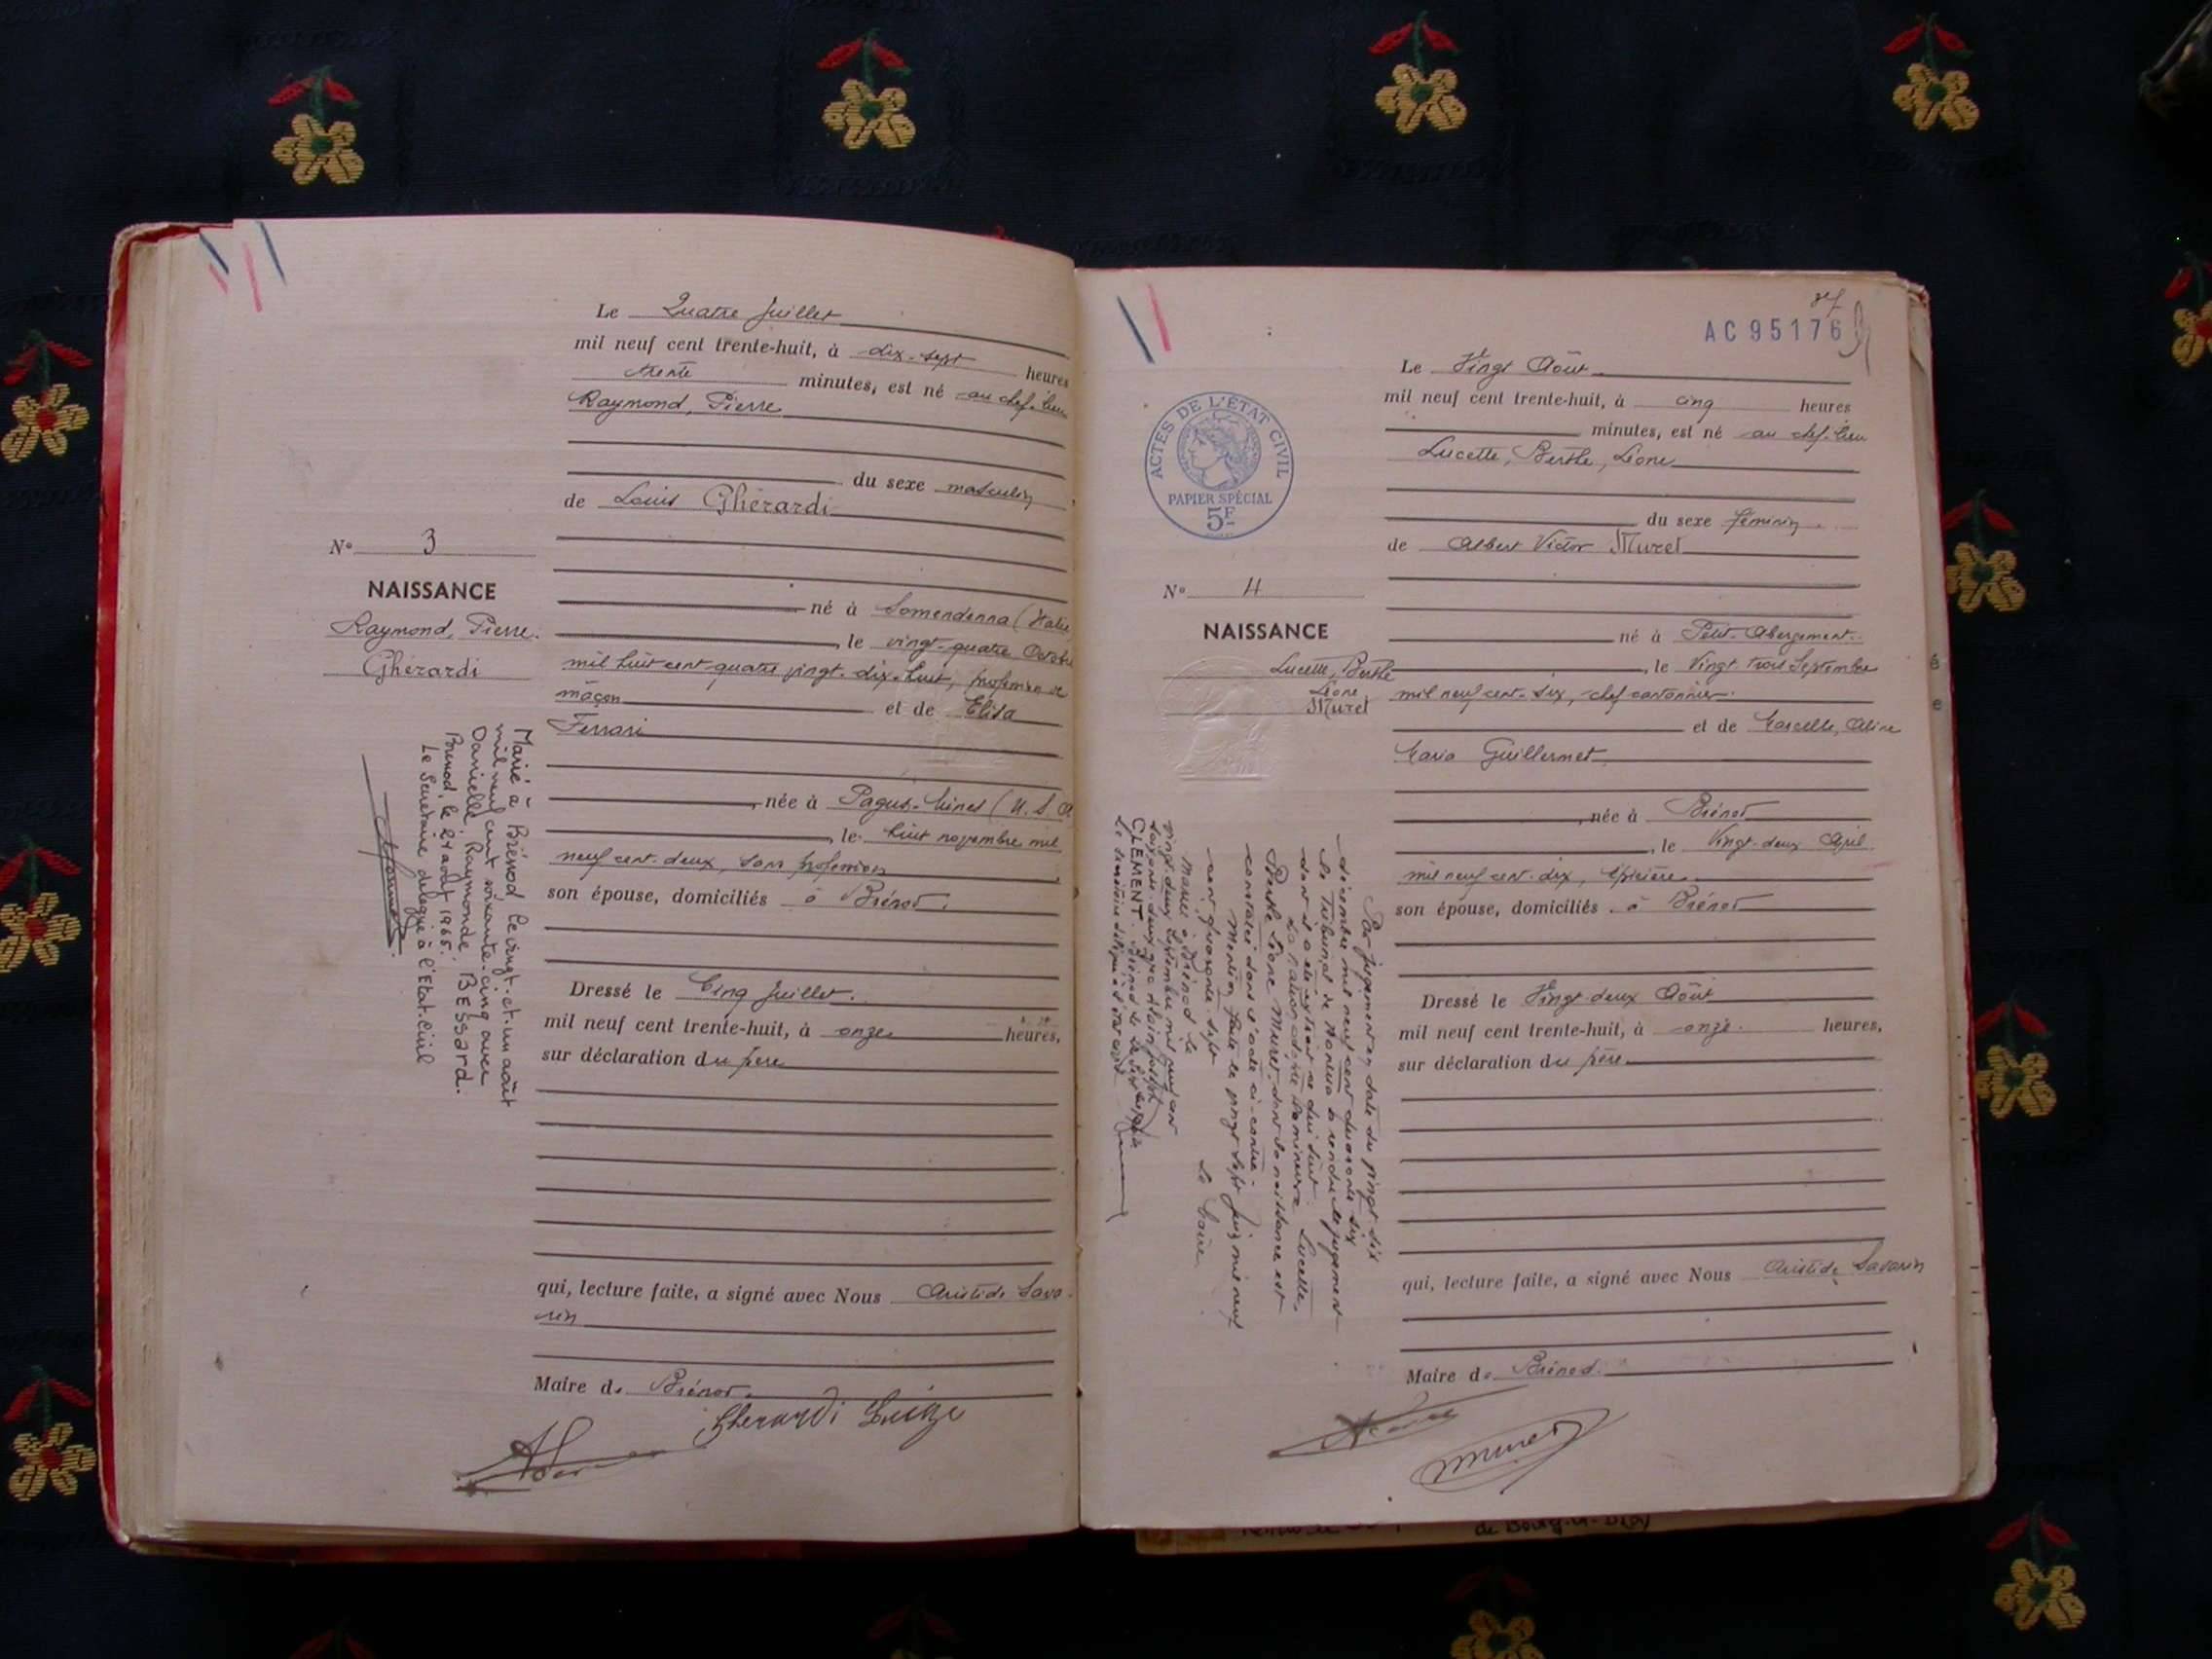 Le Quatre Juillet
mil neuf cent trente-huit, à dix-sept heures
trente minutes, est né au chef-lieu
Raymond, Pierre
du sexe masculin
de Louis Ghérardi
N° 3
NAISSANCE
Raymond, Pierre
Ghérardi
né à Somendenna (Italie
, le vingt-quatre Octobre
mil huit cent quatre vingt-dix-huit, profession de
maçon et de Elisa
Ferrari
, née à Pagus-Mines (U.S.A
, le huit novembre mil
neuf cent-deux, sans profession
son épouse, domiciliés à Brénod.
Dressé le Cinq Juillet.
mil neuf cent trente-huit, à onze heures,
sur déclaration du père
qui, lecture faite, a signé avec Nous Aristide Sava-
rin
Maire de Brénod.
Gherardi Luige
Marié à Brénod le vingt-et-un août
mil neuf cent soixante-cinq avec
Danielle, Raymonde, BESSARD.
Brénod, le 21 août 1965.
Le Secrétaire délégué à l'Etat-Civil
87
AC 95176
ACTES DE L'ÉTAT CIVIL
PAPIER SPÉCIAL
5F
Le Vingt Août
mil neuf cent trente-huit, à cinq heures
minutes, est né au chef-lieu
Lucette, Berthe, Léone
du sexe féminin.
de Albert Victor Muret
N° 4
NAISSANCE
Lucette, Berthe
Léone
Muret
né à Petit-Abergement
, le Vingt-trois Septembre
mil neuf cent-six, chef cantonnier
et de Marcelle, Aline
Maria Guillermet
, née à Brénod
, le Vingt-deux Avril
mil neuf cent-dix, épicière
son épouse, domiciliés à Brénod
Dressé le Vingt-deux Août
mil neuf cent trente-huit, à onze heures,
sur déclaration du père
qui, lecture faite, a signé avec Nous Aristide Savarin
Maire de Brénod.
Par jugement en date du vingt-six
décembre mil neuf cent quarante six
le Tribunal de Nantua a rendu le jugement
dont il a été extrait ce qui suit :
La nation adopte la mineure Lucette,
Berthe Léone Muret, dont la naissance est
constatée dans l'acte ci-contre.
Mention faite le vingt sept juin mil neuf
cent quarante sept
Le Maire
Mariée à Brénod le
vingt-deux septembre mil neuf cent
soixante deux avec Alain Joseph
CLÉMENT. Brénod le
Le Secrétaire délégué à l'état civil